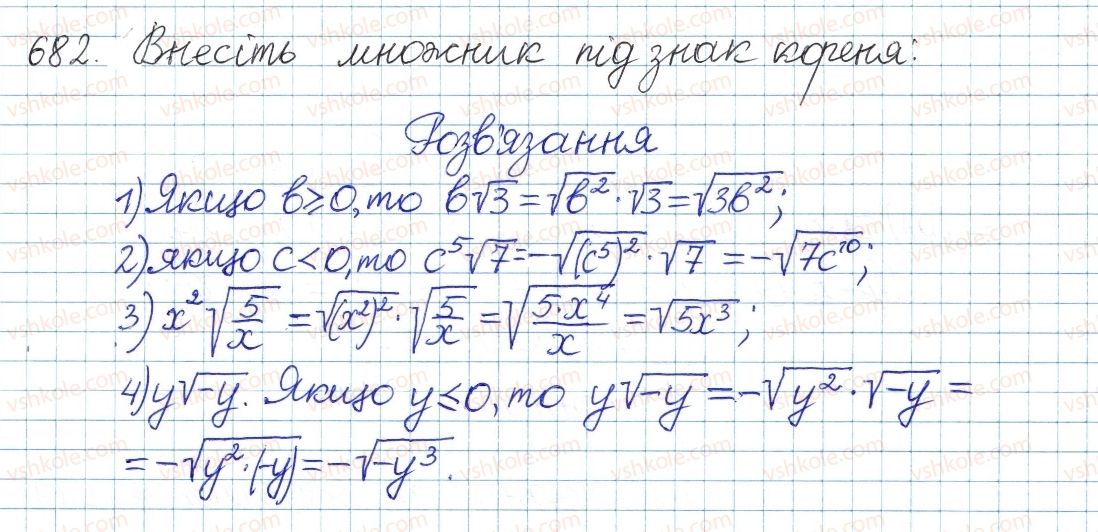 682. Внесіть множник під знак кореня:
Розв'язання
1) Якщо в≥0, то в√3 = √в² · √3 = √3в²;
2) якщо с<0, то с⁵√7 = -√(с⁵)² · √7 = -√7с¹⁰;
3) x²√5/x = √(x²)² · √5/x = √5·x⁴/x = √5x³;
4) y√-y. Якщо y≤0, то y√-y = -√y² · √-y =
= -√y²·(-y) = -√-y³.